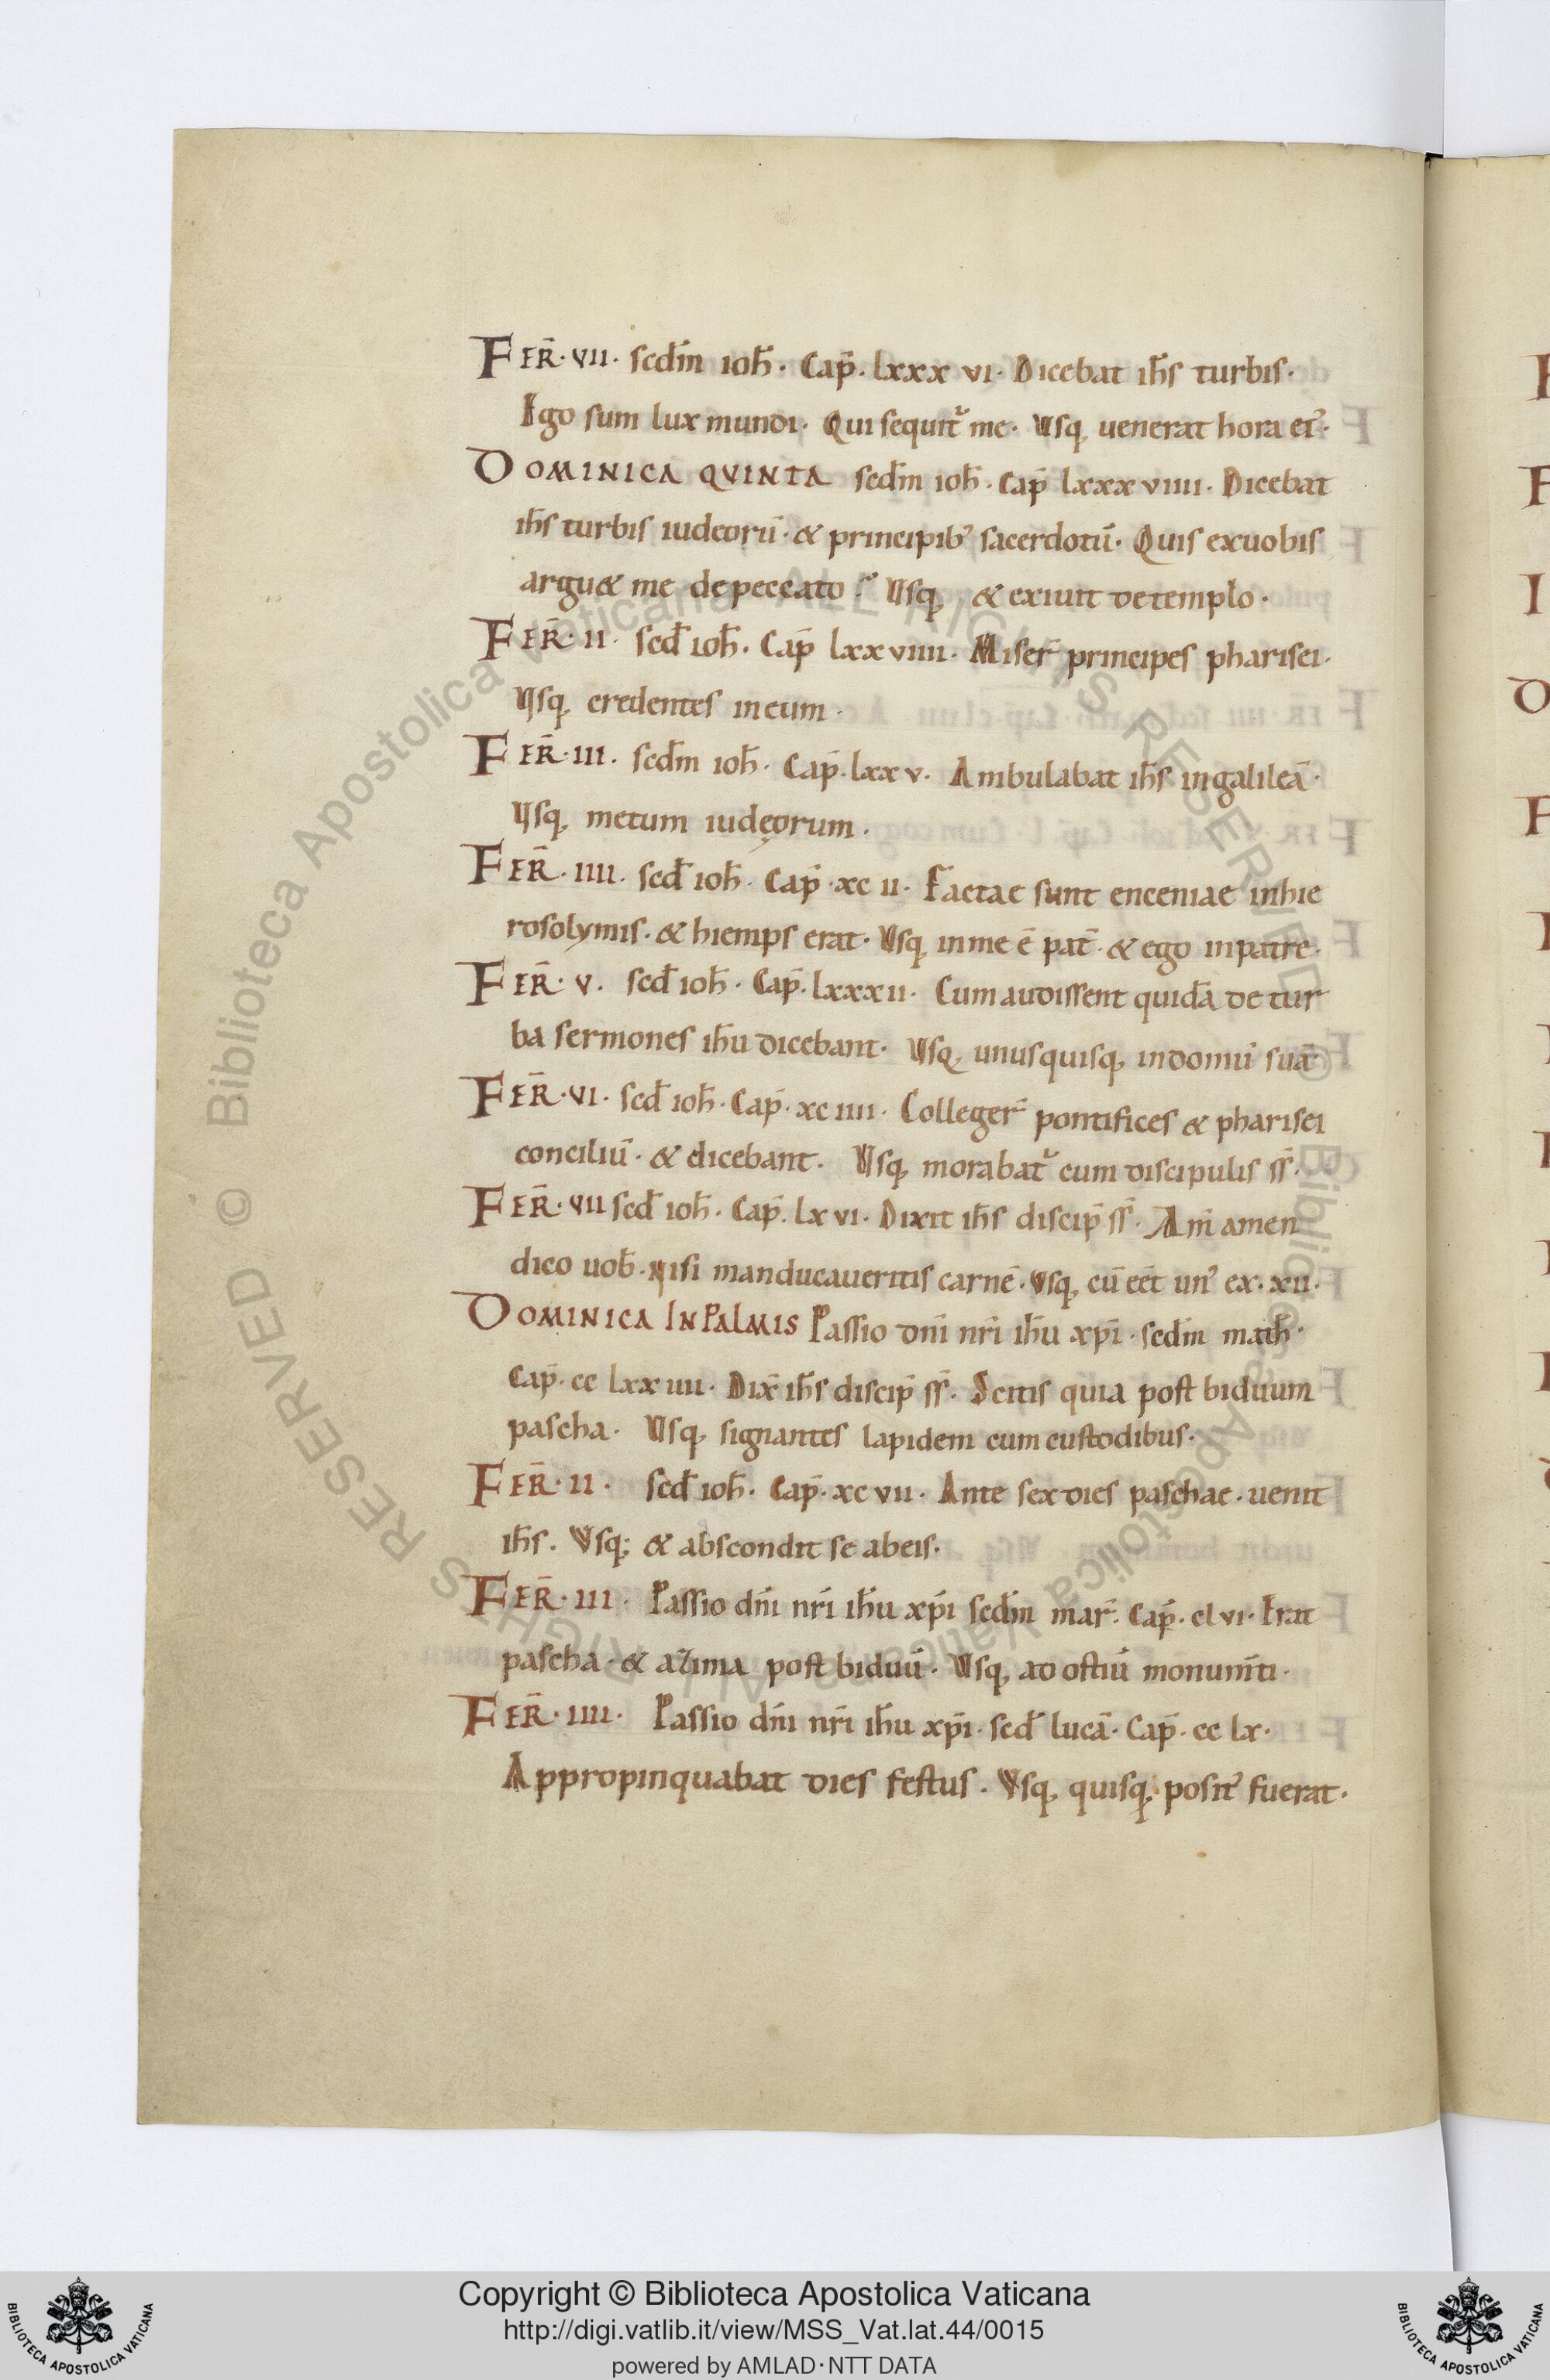 FER̄· VII· scdm̄ ioh̄· Cap̄· lxxx vi· Dicebat ih̄s turbis·
Ego sum lux mundi· Qui sequit᷑ me· Usq, uenerat hora ei᷒·
DOMINICA QVINTA scdm̄ ioh̄· Cap̄ lxxx viiii· Dicebat
ih̄s turbis iudeorū· & principib᷒ sacerdotū· Quis exuobis
argu& me depeccato? Usq, & exiuit detemplo·
FER̄· II· scd̄ ioh̄· Cap̄ lxx viiii· Miser̄ principes pharisei·
Usq, credentes ineum·
FER̄· III· scdm̄ ioh̄· Cap̄· lxx v· Ambulabat ih̄s ingalileā·
Usq, metum iudęorum·
FER̄· IIII· scd̄ ioh̄· Cap̄· xc ii· Factae sunt enceniae inhie
rosolymis· & hiemps erat· Usq, inme ē pat̄· & ego inpatre·
FER̄· V· scd̄ ioh̄· Cap̄· lxxx ii· Cum audissent quidā de tur
ba sermones ih̄u dicebant· Usq, unusquisq, indomū suā·
FER̄· VI· scd̄ ioh̄· Cap̄· xc iiii· Colleger̄ pontifices & pharisei
conciliū· & dicebant· Usq, morabat᷑ cum discipulis ss̄·
FER̄· VII scd̄ ioh̄· Cap̄· lx vi· Dixit ih̄s discip̄ ss̄· Am̄ amen
dico uob̄· Nisi manducaueritis carnē· Usq, cū eēt un᷒ ex· xii·
DOMINICA IN PALMIS Passio dn̄i nr̄i ih̄u xp̄i· scdm̄ math̄·
Cap̄· cc lxx iiii· Dix̄ ih̄s discip̄ ss̄· Scitis quia post biduum
pascha· Usq, signantes lapidem cum custodibus·
FER̄· II· scd̄ ioh̄· Cap̄· xc vii· Ante sex dies paschae· uenit
ih̄s· Usq; & abscondit se abeis·
FER̄· III· Passio dn̄i nr̄i ih̄u xp̄i scdm̄ mar̄· Cap̄· cl vi· Erat
pascha· & azima post biduū· Usq, ad ostiū monum̄ti·
FER̄· IIII· Passio dn̄i nr̄i ih̄u xp̄i· scd̄ lucā· Cap̄· cc lx·
Appropinquabat dies festus· Usq, quisq, posit᷒ fuerat·
© Biblioteca Apostolica Vaticana ALL RIGHTS RESERVED
© Biblioteca Apostolica Vaticana ALL RIGHTS RESERVED
Copyright © Biblioteca Apostolica Vaticana
http://digi.vatlib.it/view/MSS_Vat.lat.44/0015
powered by AMLAD·NTT DATA
BIBLIOTECA APOSTOLICA VATICANA
BIBLIOTECA APOSTOLICA VATICANA